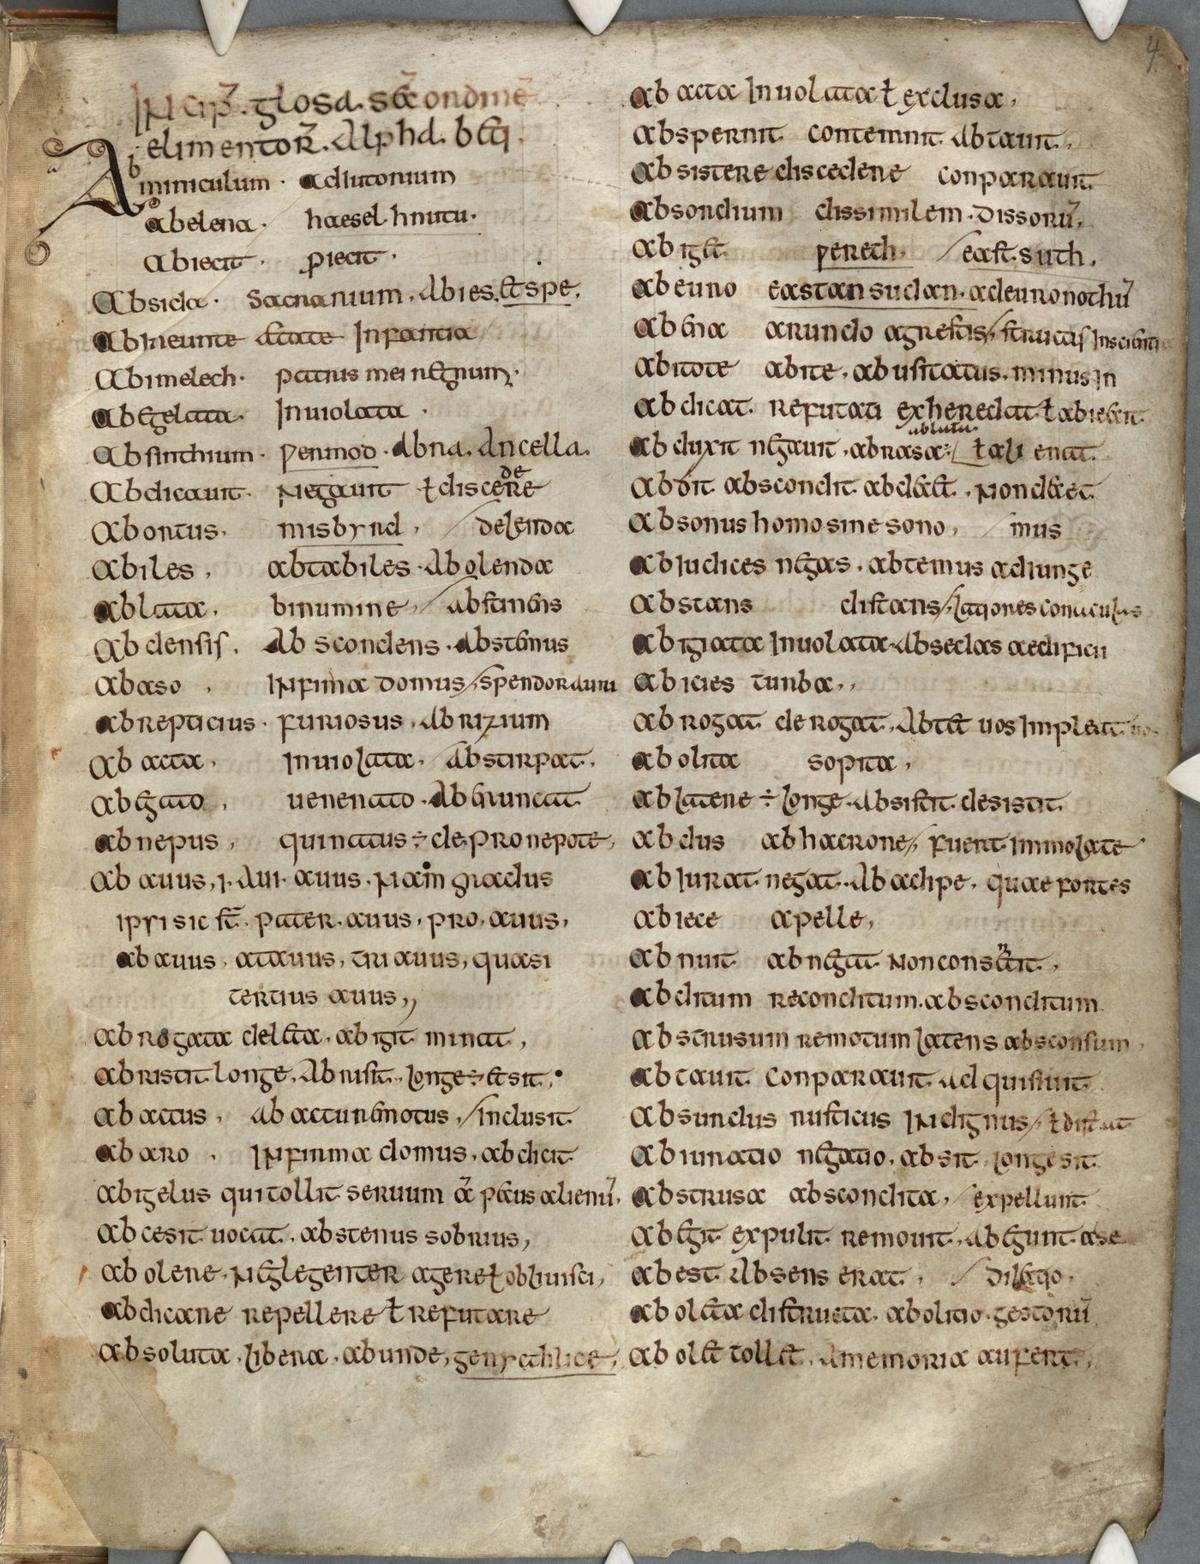 4
Incip̄. glosa. secundum
elimentoȓ. Alphabeti
Abminiculum · adiutorium
abelena · haesel·hnutu·
abiecit · proiecit ·
Absida · sacrarium · Abies. etspe
abineunte aetate Infantia
Abimelech · patris mei regnum
abgelata · Inuiolata ·
Absinthium · permod · Abra. Ancella.
Abdicauit. Negauit ł discedere
Abortus · misbyrd , delenda
abiles , abtabiles · Abolenda
ablata , binumine / Abstinens
Abdensis . Abscondens · Abstenus
abaso , Infima domus / spendor auri
abrepticius · furiosus , Abrizium
abacta , Inuiolata , Abstirpat.
abgato , uenenato · Aberuncat
abnepus , qui natus ÷ de pronepote,
abauus, .i. Aui auus · Nam gradus
ipsi sic st̄ pater. auus, pro.auus,
abauus, atauus, triauus, quasi
tertius auus,,
abrogata deleta · abigit minat ,
abristit longe, Abrisit, longe÷etsit,
abactus , Ab actu remotus, / inclusit
abaro , Infirma domus , abdicit
abigelus qui tollit seruum aut pecus alienū,
abcesit uocat , abstenus sobrius,
abolere · Neglegenter agere ł obliuisci,
abdicare repellere ł refutare
absoluta , libera , abunde, genyctlice,
abacta Inuolata ł exclusa ,
abspernit contemnit Abtauit,
absistere discedere conparauit
absondium dissimilem · Dissonū,
abiget pereth. / east.suth.
abeuno eastansudan · ad euronothū
abena arundo agrestis / structis Inscienti
abitote abite , abusitatus . minus in
abdicat refutat exheredat ł abiecit
ablutū
abduxit negauit , abrasa · ł ali enat
abdit abscondit abdecet , Non decet
absonus homo sine sono , / mus
abiudices negas . abtemus adiunge
abstans distans / lationes conuiculus
abigiata Inuolata · Absedas aedificii
abicies turba,,
abrogat derogat . Abtet uos Impleat
abolita sopita ,
ablatere ÷ longe · Absistit desistit
abdus ab hac rone / fuert immolate
abiurat negat · Abadipe , quae fortes
abiece apelle,
abnuit abnegat Non consentit ,
abditum reconditum. absconditum
abstrusum remotum latens absconsum
abtauit Conparauit Adquisiuit
absurdus rusticus Indignus / ł distat
abiuratio negatio, absit longe sit
abstrusa abscondita , / expellunt
abegit expulit remouit, Abegunt ase
abest Absens erat , / Dilatio.
aboleta distructa · abolitio gestorū
abolet tollet . A memoria aufert ,